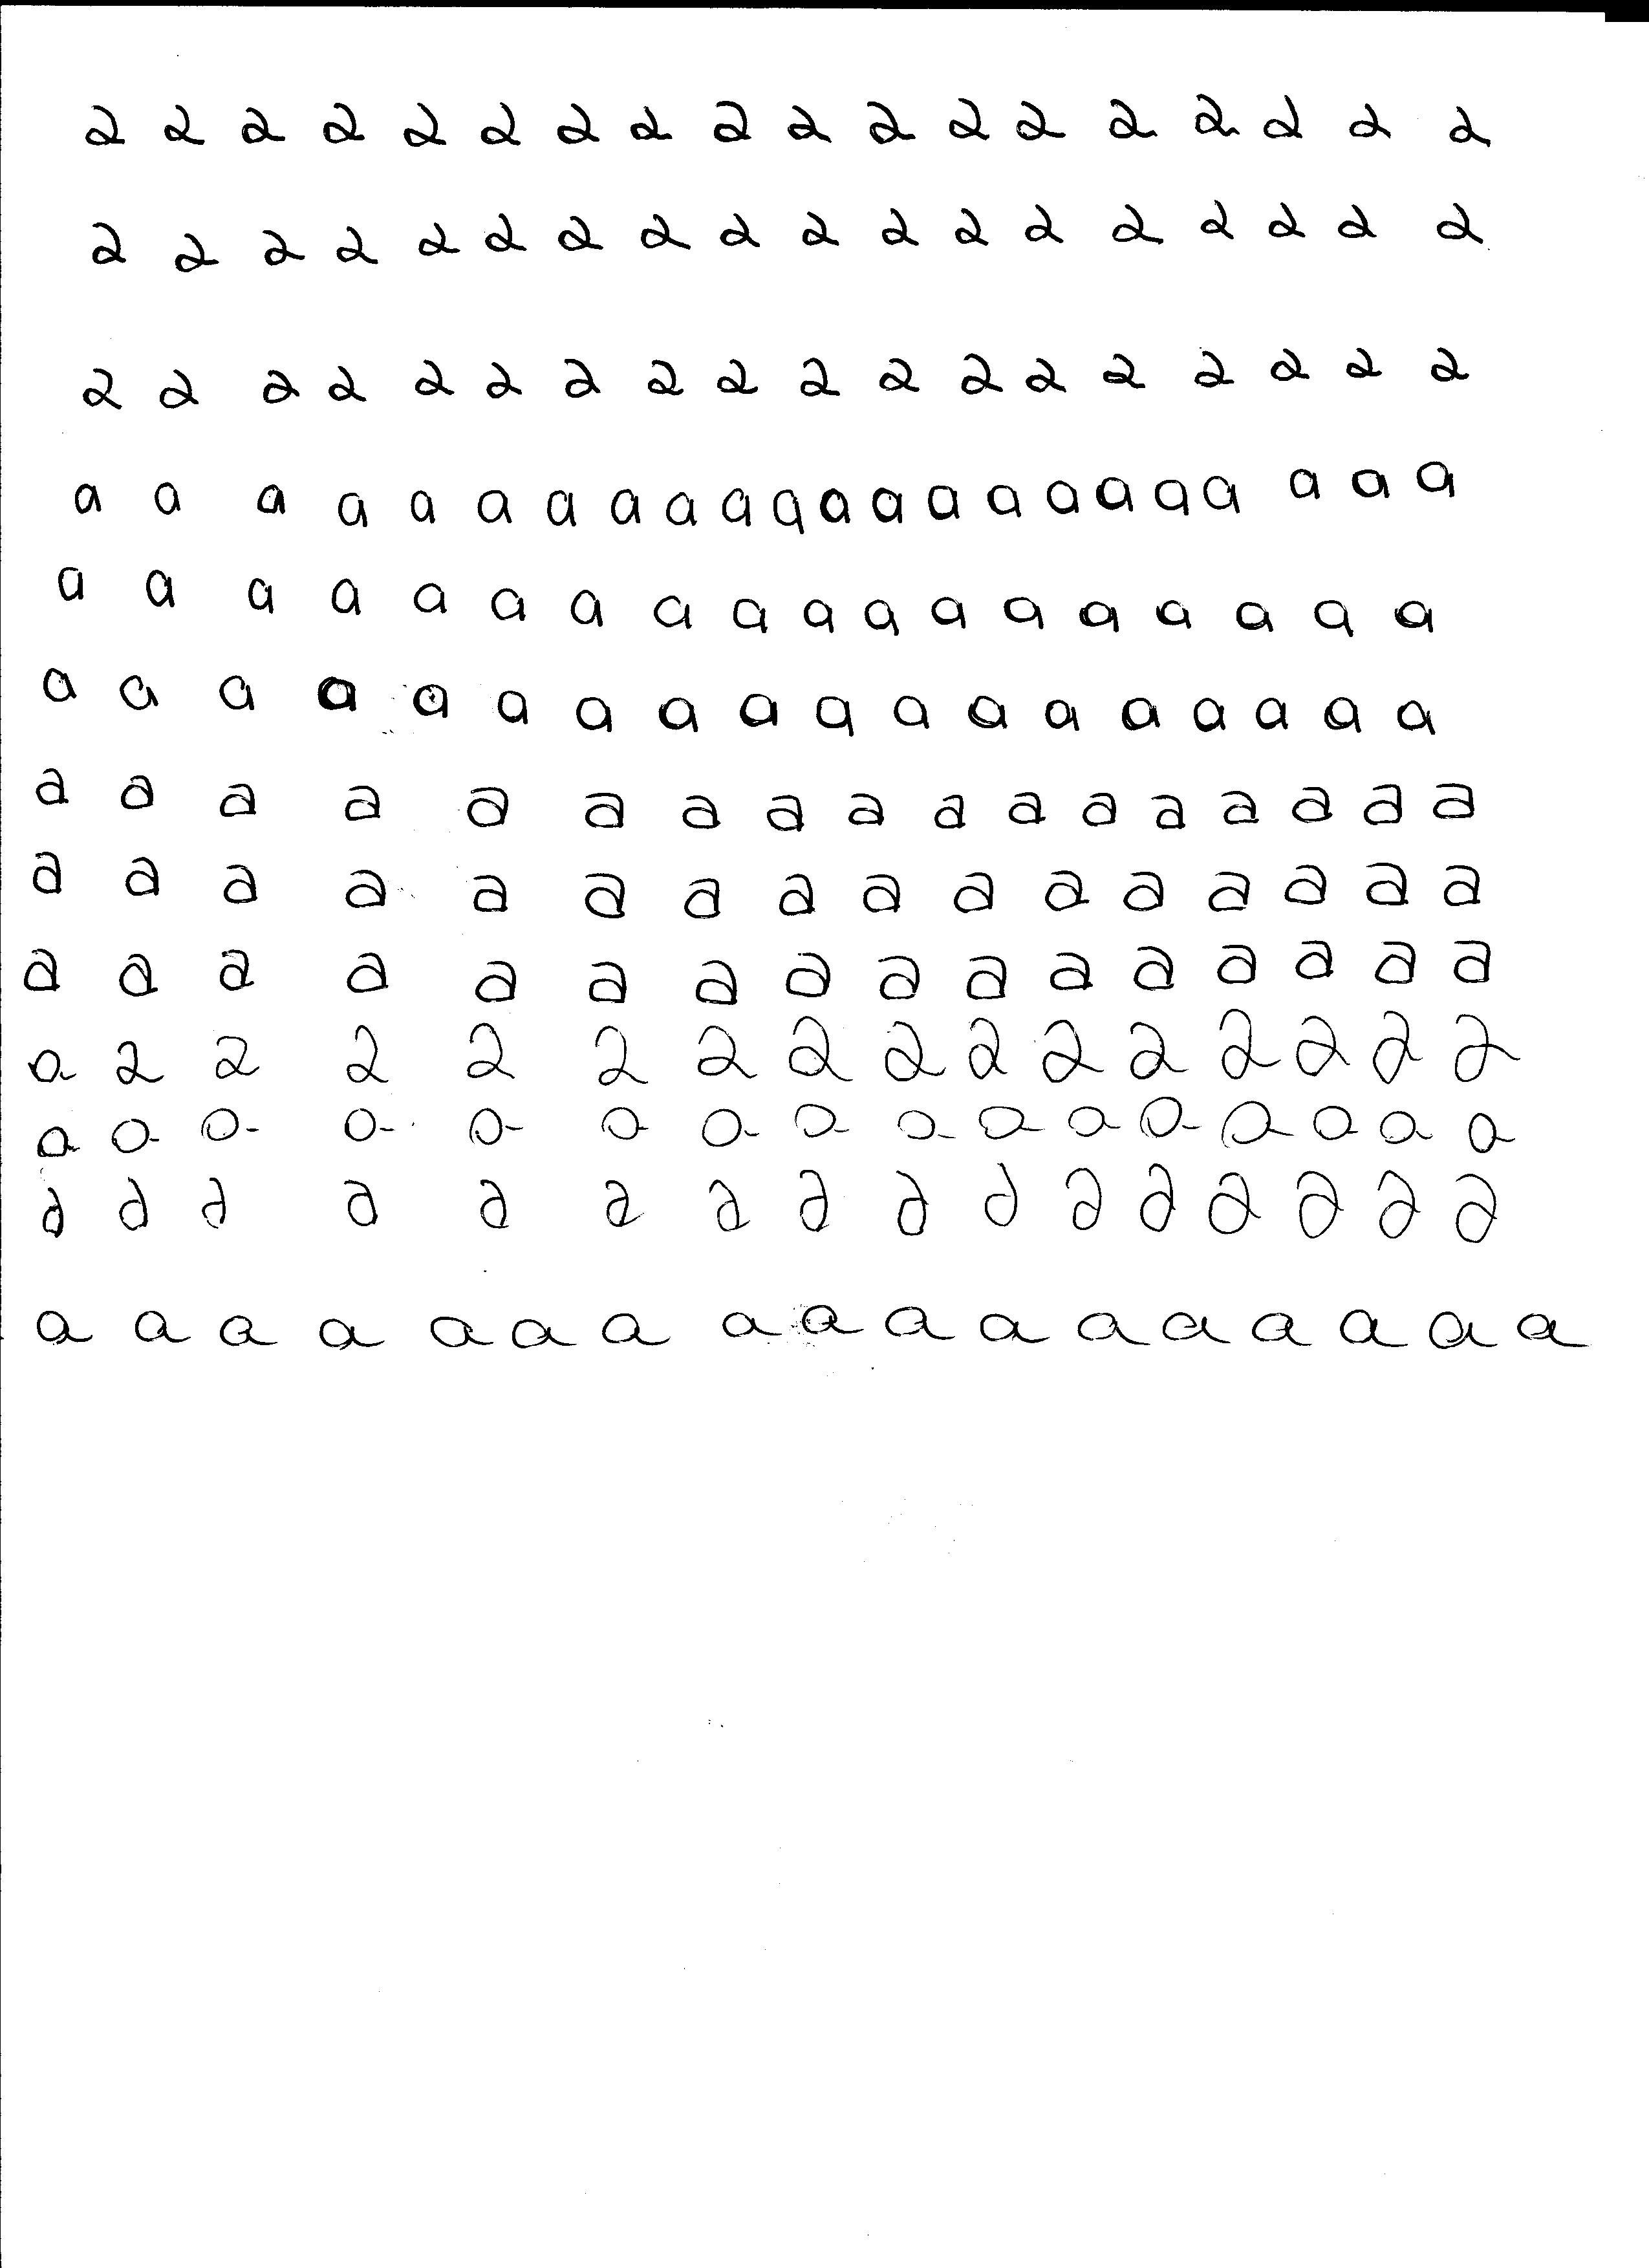 a a a a a a a a a a a a a a a a a a
a a a a a a a a a a a a a a a a a a
a a a a a a a a a a a a a a a a a a
a a a a a a a a a a a a a a a a a a a a a a
a a a a a a a a a a a a a a a a a a
a a a a a a a a a a a a a a a a a a
a a a a a a a a a a a a a a a a a
a a a a a a a a a a a a a a a a
a a a a a a a a a a a a a a a a
a a a a a a a a a a a a a a a a
a a a a a a a a a a a a a a a a
a a a a a a a a a a a a a a a a
a a a a a a a a a a a a a a a a a